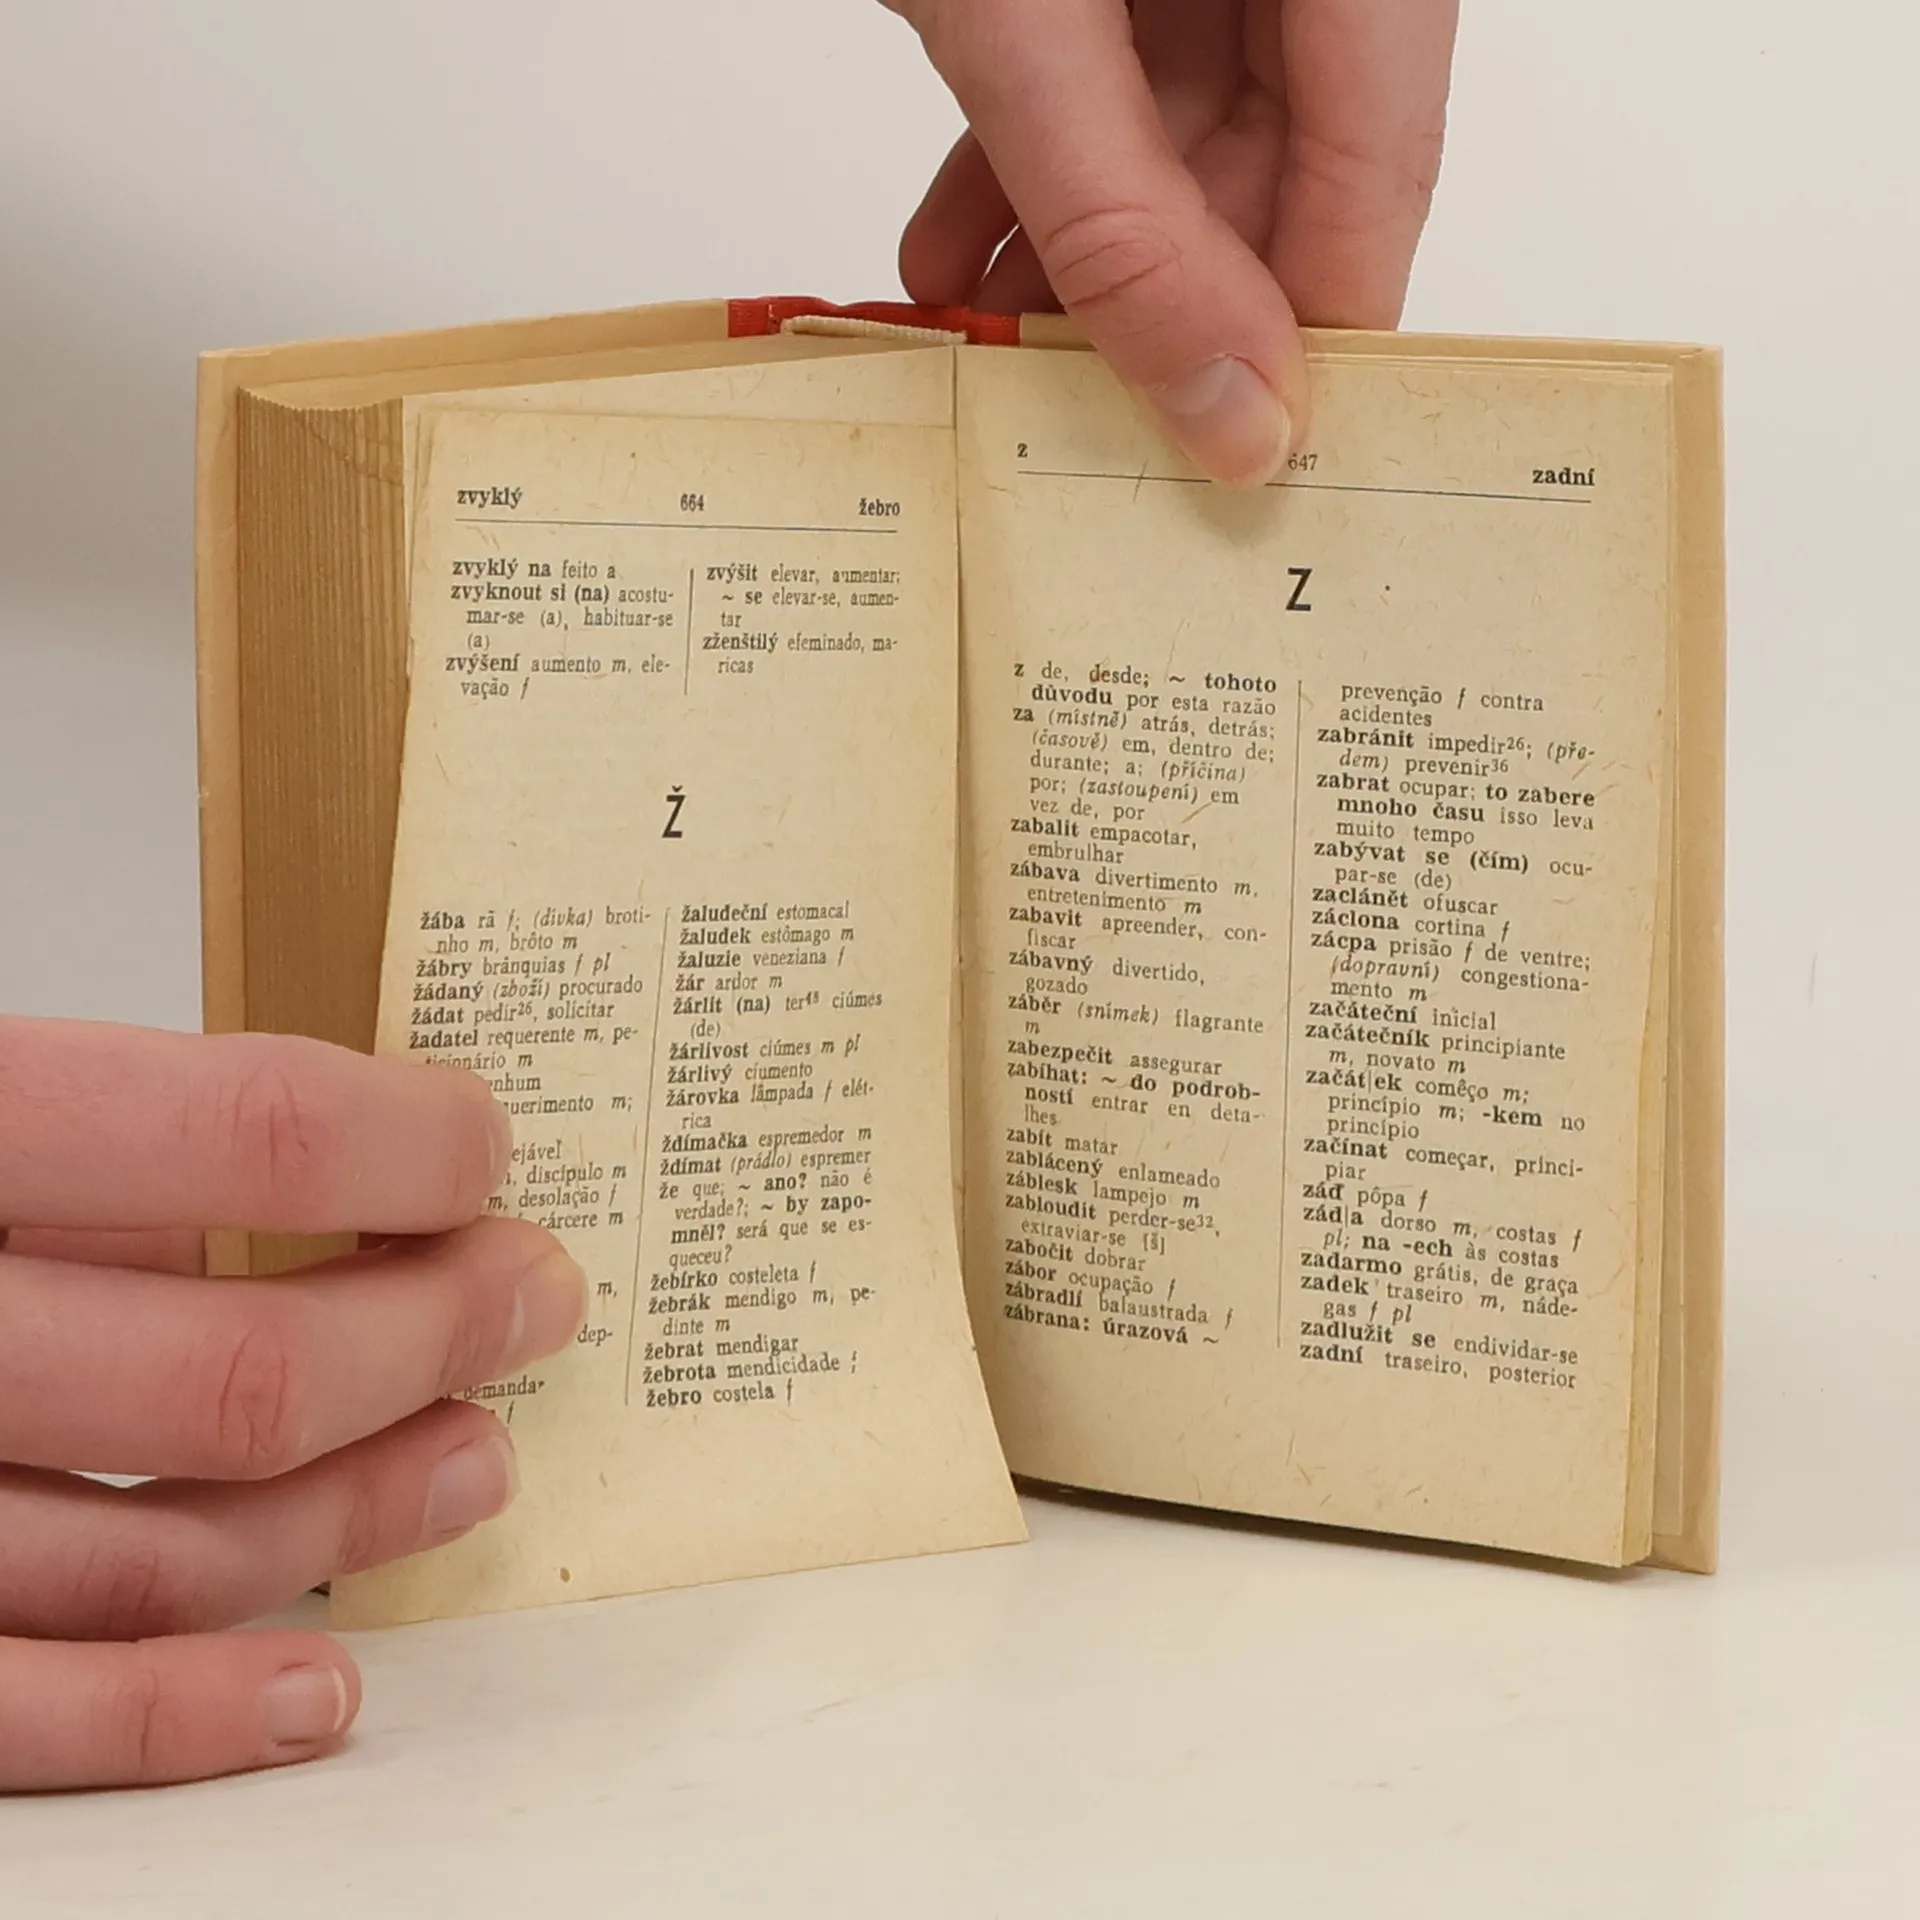 zvyklý 664 žebro
zvyklý na feito a
zvyknout si (na) acostu-
mar-se (a), habituar-se
(a)
zvýšení aumento m, ele-
vação f
zvýšit elevar, aumentar;
~ se elevar-se, aumen-
tar
zženštilý efeminado, ma-
ricas
Ž
žába rã f; (dívka) broti-
nho m, brôto m
žábry brânquias f pl
žádaný (zboží) procurado
žádat pedir26, solicitar
žadatel requerente m, pe-
ticionário m
enhum
querimento m;
ejável
m, discípulo m
m, desolação f
cárcere m
m,
dep-
demanda-
f
žaludeční estomacal
žaludek estômago m
žaluzie veneziana f
žár ardor m
žárlit (na) ter48 ciúmes
(de)
žárlivost ciúmes m pl
žárlivý ciumento
žárovka lâmpada f elét-
rica
ždímačka espremedor m
ždímat (prádlo) espremer
že que; ~ ano? não é
verdade?; ~ by zapo-
mněl? será que se es-
queceu?
žebírko costeleta f
žebrák mendigo m, pe-
dinte m
žebrat mendigar
žebrota mendicidade f
žebro costela f
z 647 zadní
Z
z de, desde; ~ tohoto
důvodu por esta razão
za (místně) atrás, detrás;
(časově) em, dentro de;
durante; a; (příčina)
por; (zastoupení) em
vez de, por
zabalit empacotar,
embrulhar
zábava divertimento m,
entretenimento m
zabavit apreender, con-
fiscar
zábavný divertido,
gozado
záběr (snímek) flagrante
m
zabezpečit assegurar
zabíhat: ~ do podrob-
ností entrar en deta-
lhes
zabít matar
zablácený enlameado
záblesk lampejo m
zabloudit perder-se32,
extraviar-se [š]
zabočit dobrar
zábor ocupação f
zábradlí balaustrada f
zábrana: úrazová ~
prevenção f contra
acidentes
zabránit impedir26; (pře-
dem) prevenir36
zabrat ocupar; to zabere
mnoho času isso leva
muito tempo
zabývat se (čím) ocu-
par-se (de)
zaclánět ofuscar
záclona cortina f
zácpa prisão f de ventre;
(dopravní) congestiona-
mento m
začáteční inicial
začátečník principiante
m, novato m
začát|ek comêço m;
princípio m; -kem no
princípio
začínat começar, princi-
piar
záď pôpa f
zád|a dorso m, costas f
pl; na -ech às costas
zadarmo grátis, de graça
zadek traseiro m, náde-
gas f pl
zadlužit se endividar-se
zadní traseiro, posterior